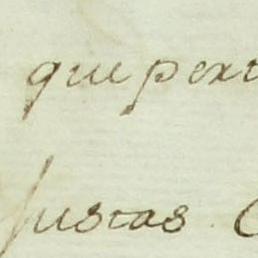 que pert
justas